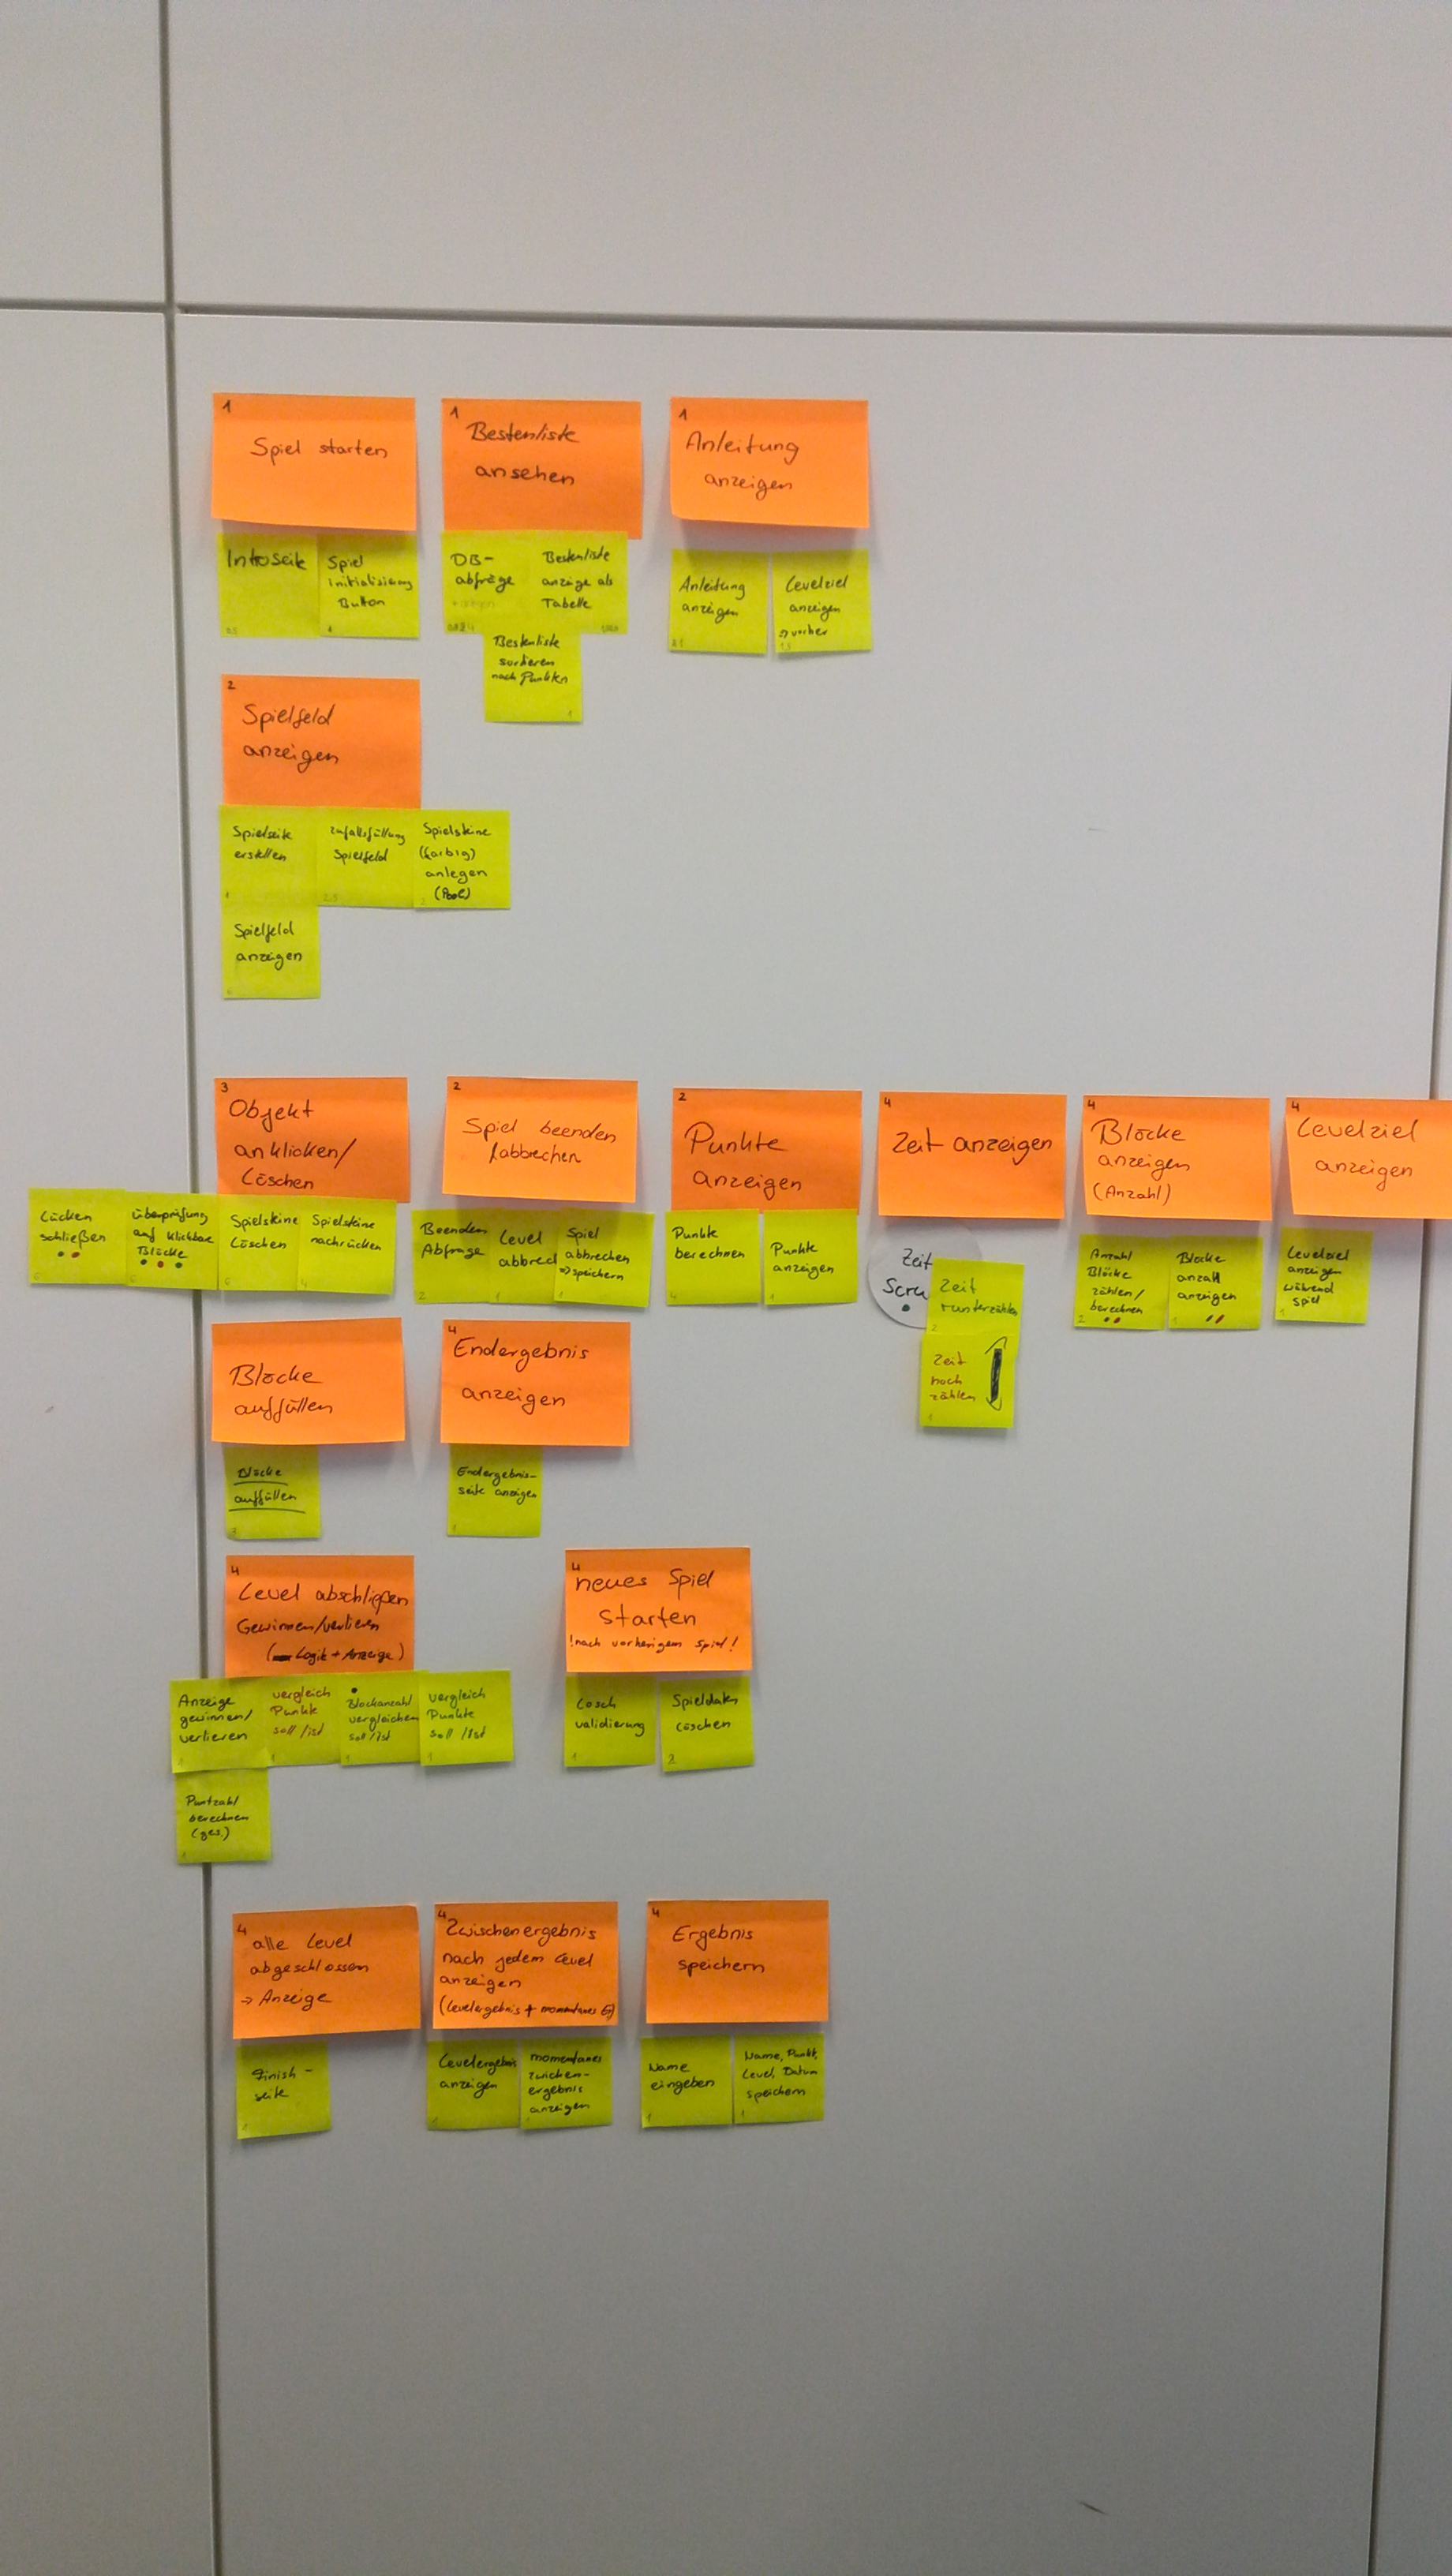 1
Spiel starten
Introseite
Spiel
initialisierung
Button
1
1
Bestenliste
ansehen
DB-
abfrage
Bestenliste
anzeige als
Tabelle
Bestenliste
sortieren
nach Punkten
1
1
Anleitung
anzeigen
Anleitung
anzeigen
Levelziel
anzeigen
=> vorher
2
Spielfeld
anzeigen
Spielseite
erstellen
1
Zufallsfüllung
Spielfeld
Spielsteine
(farbig)
anlegen
(Pool)
2
Spielfeld
anzeigen
6
3
Objekt
anklicken/
Löschen
Lücken
schließen
6
überprüfung
auf klickbare
Blöcke
6
Spielsteine
Löschen
6
Spielsteine
nachrücken
4
2
Spiel beenden
/abbrechen
Beenden
Abfrage
2
Level
abbrech
1
Spiel
abbrechen
=> speichern
1
2
Punkte
anzeigen
Punkte
berechnen
4
Punkte
anzeigen
1
4
Zeit anzeigen
Zeit
Scru
Zeit
runterzählen
2
Zeit
hoch
zählen
1
4
Blöcke
anzeigen
(Anzahl)
Anzahl
Blöcke
zählen/
berechnen
2
Blöcke
anzahl
anzeigen
1
4
Levelziel
anzeigen
Levelziel
anzeigen
während
spiel
1
Blöcke
auffüllen
Blöcke
auffüllen
3
4
Endergebnis
anzeigen
Endergebnis-
seite anzeigen
1
4
Level abschließen
Gewinnen/verlieren
(Logik + Anzeige)
Anzeige
gewinnen/
verlieren
1
vergleich
Punkte
soll /ist
1
Blockanzahl
vergleichen
soll /ist
1
vergleich
Punkte
soll /ist
1
Puntzahl
berechnen
(ges.)
1
4
neues Spiel
starten
!nach vorherigem Spiel!
Lösch
validierung
1
Spieldaten
Löschen
2
4
alle Level
abgeschlossen
-> Anzeige
Finish-
seite
1
4
Zwischenergebnis
nach jedem Level
anzeigen
(Levelergebnis + momentanes
Levelergebnis
anzeigen
1
momentanes
zwischen-
ergebnis
anzeigen
1
4
Ergebnis
speichern
Name
eingeben
1
Name, Punkte,
Level, Datum
speichern
1